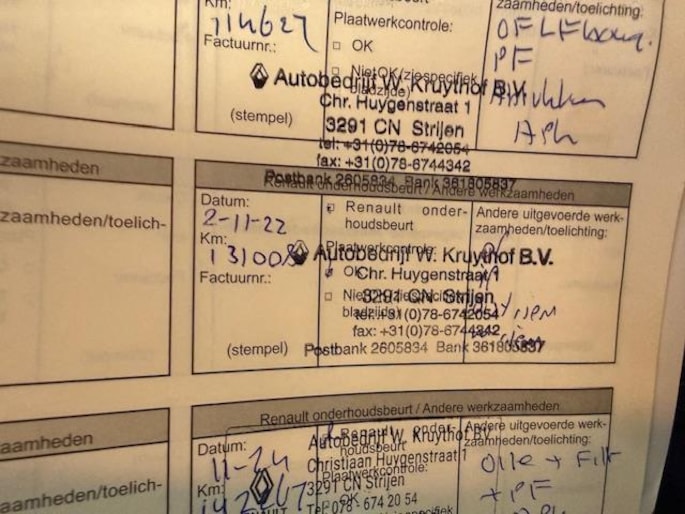 Km:
114627
Factuurnr.:
(stempel)
Plaatwerkcontrole:
OK
Niet OK (zie specifiek
bladzijde)
zaamheden/toelichting:
PF
APk
Autobedrijf W. Kruythof B.V.
Chr. Huygenstraat 1
3291 CN Strijen
tel: +31(0)78-6742054
fax: +31(0)78-6744342
Postbank 2605834 Bank 361805837
zaamheden
zaamheden/toelich-
Renault onderhoudsbeurt / Andere werkzaamheden
Datum:
2-11-22
Km:
Factuurnr.:
(stempel)
Renault onder-
houdsbeurt
Plaatwerkcontrole:
OK
bladzijde)
Andere uitgevoerde werk-
zaamheden/toelichting:
Autobedrijf W. Kruythof B.V.
Chr. Huygenstraat 1
3291 CN Strijen
tel: +31(0)78-6742054
fax: +31(0)78-6744342
Postbank 2605834 Bank 361805837
aamheden
aamheden/toelich-
Renault onderhoudsbeurt / Andere werkzaamheden
Datum:
11-24
Km:
RENAULT
Renault onder-
houdsbeurt
Plaatwerkcontrole:
OK
Andere uitgevoerde werk-
zaamheden/toelichting:
Olie + Filt
+ PF
Autobedrijf W. Kruythof BV
Christiaan Huygenstraat 1
3291 CN Strijen
Tel. 078 - 674 20 54